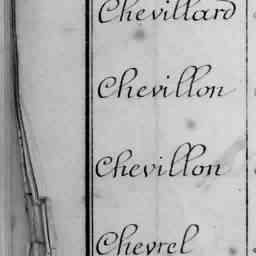 Chevillard
Chevillon
Chevillon
Chevrel